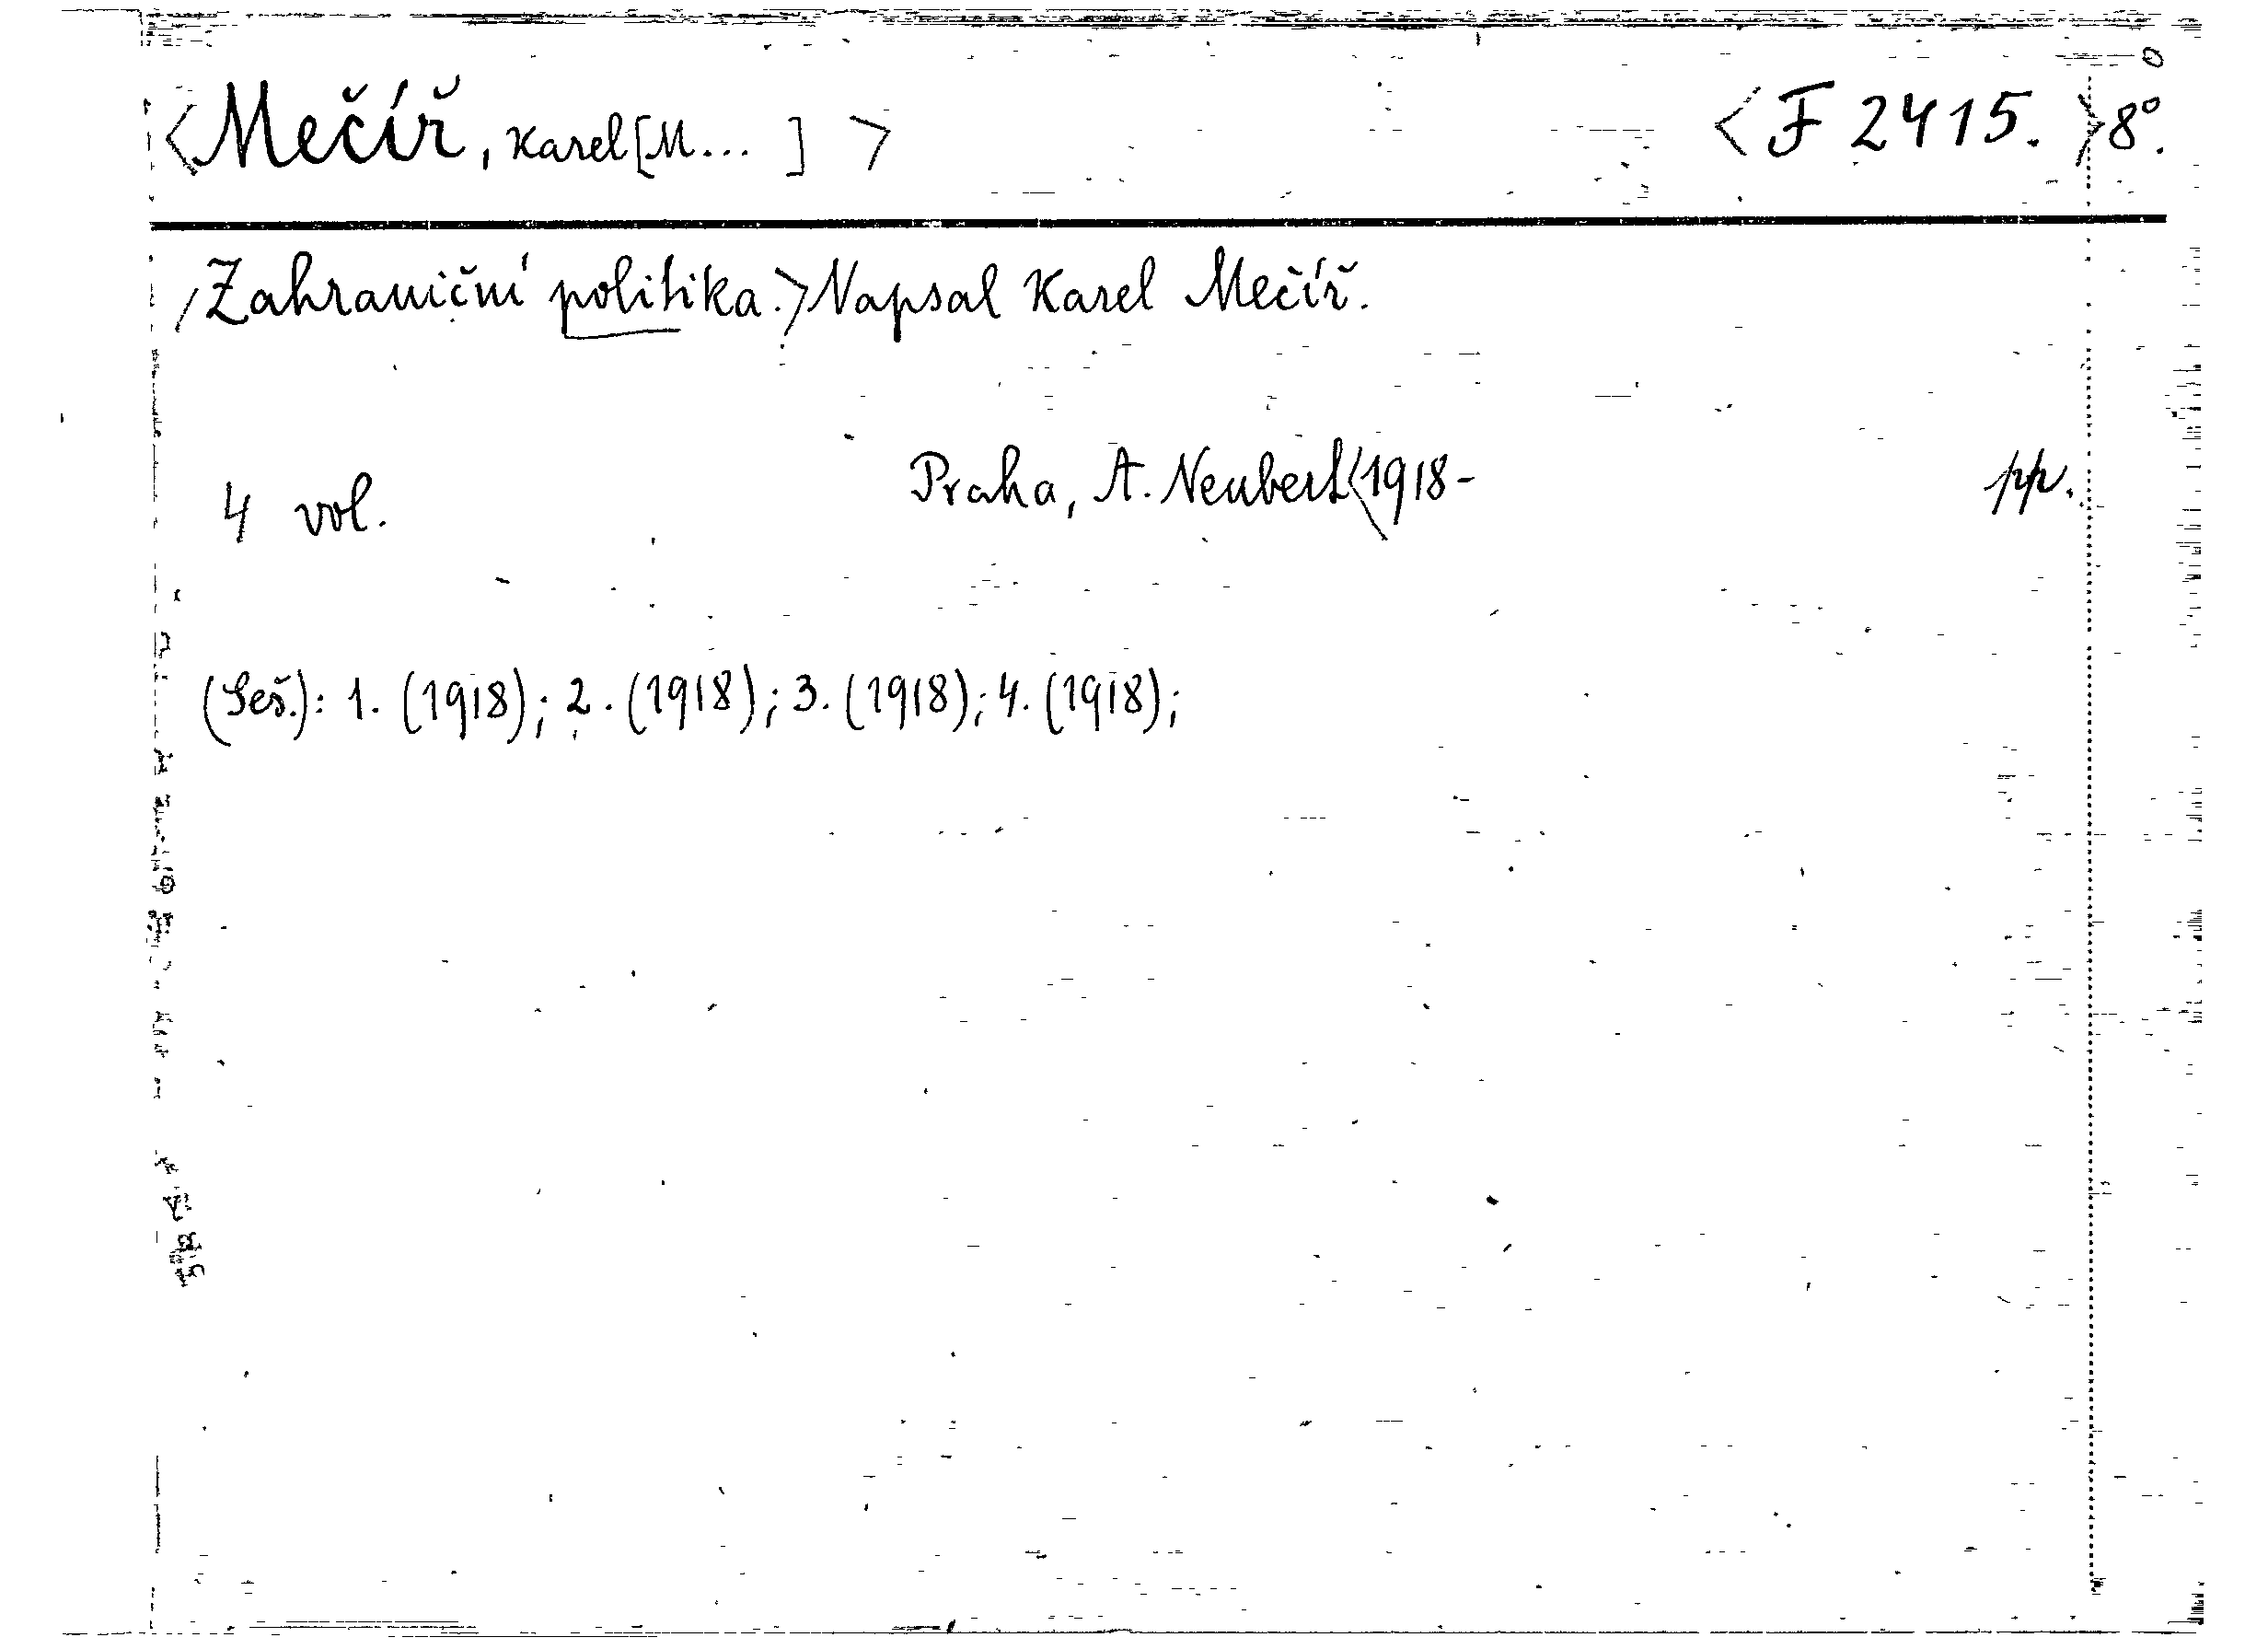 <Mečíř, Karel [M...] > <F 2415.> 8°.
Zahraniční politika.> Napsal Karel Mečíř.
4 vol. Praha, A. Neubert <1918- pp.
(Seš.): 1. (1918); 2. (1918); 3. (1918); 4. (1918);